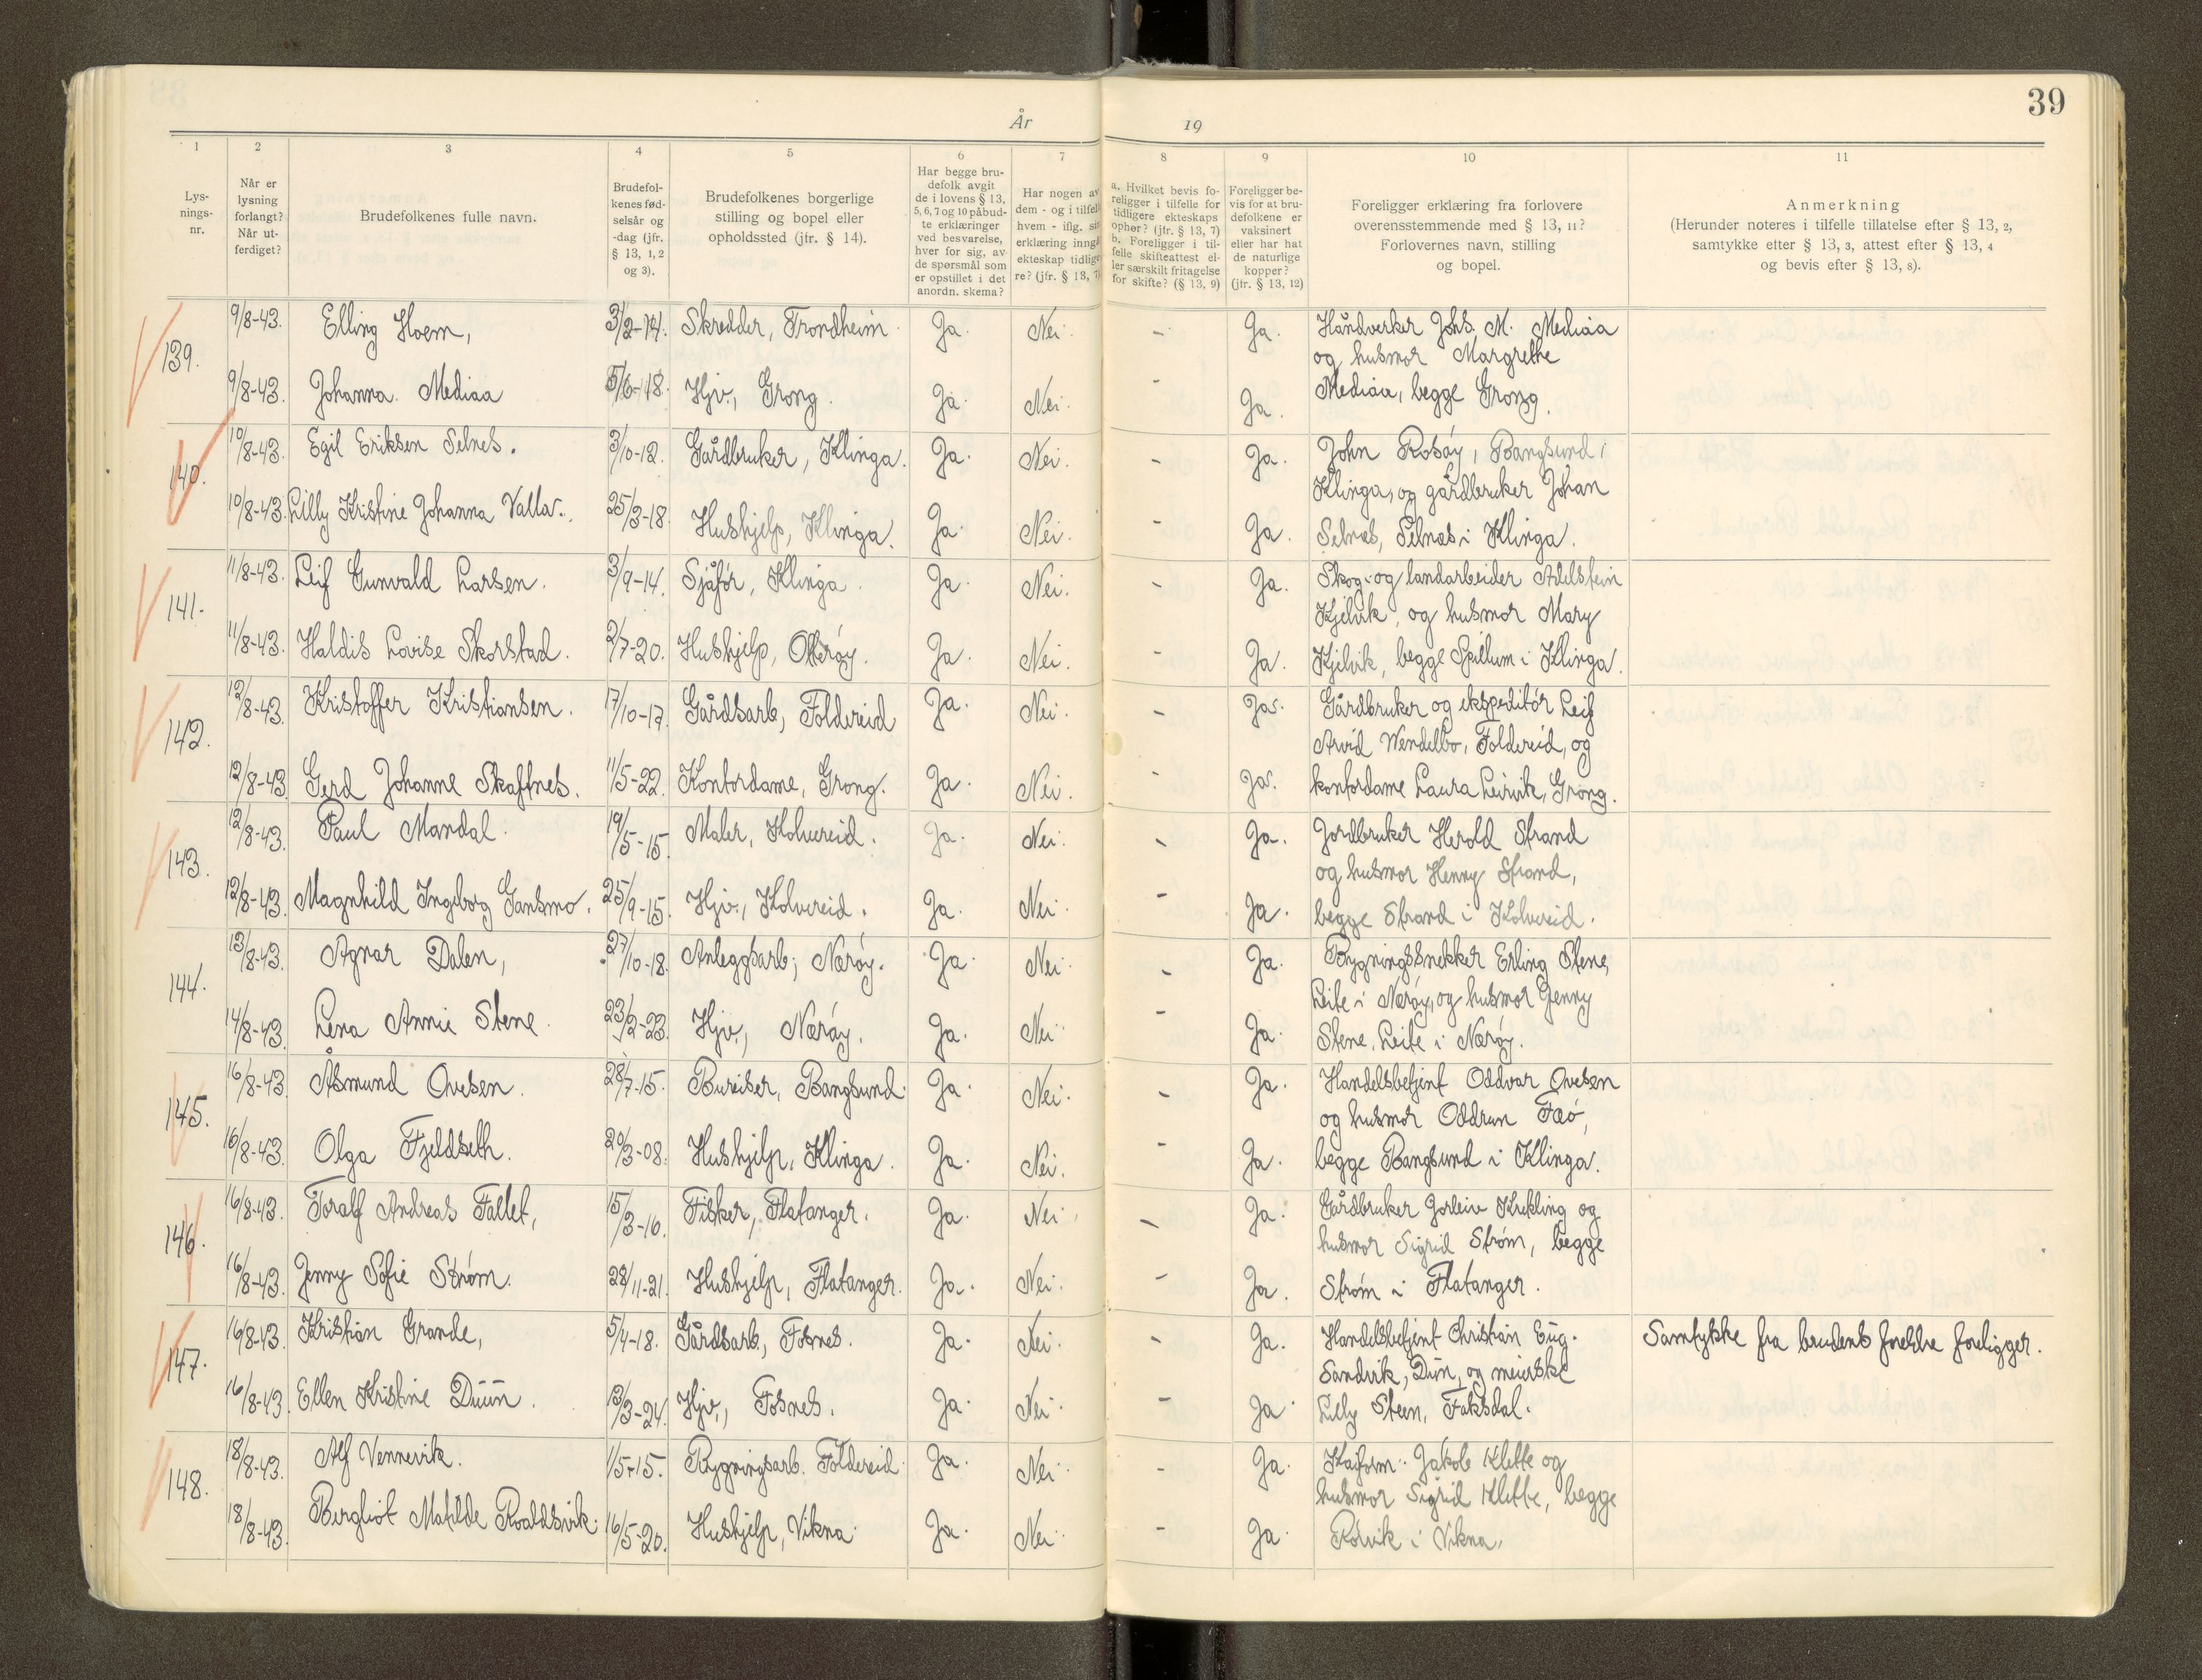 39
År 19
1 2 3 4 5 6 7 8 9 10 11
Lys-
nings-
nr.
Når er
lysning
forlangt?
Når ut-
ferdiget?
Brudefolkenes fulle navn.
Brudefol-
kenes fød-
selsår og
-dag (jfr.
§ 13, 1, 2
og 3).
Brudefolkenes borgerlige
stilling og bopel eller
opholdssted (jfr. § 14).
Har begge bru-
defolk avgit
de i lovens § 13,
5, 6, 7 og 10 påbud-
te erklæringer
ved besvarelse,
hver for sig, av
de spørsmål som
er opstillet i det
anordn. skema?
Har nogen av
dem - og i tilfel
hvem - iflg. si
erklæring inngå
ekteskap tidlige
re? (jfr. § 13, 7)
a. Hvilket bevis fo-
religger i tilfelle for
tidligere ekteskaps
ophør? (jfr. § 13, 7)
b. Foreligger i til-
felle skifteattest el-
ler særskilt fritagelse
for skifte? (§ 13, 9)
Foreligger be-
vis for at bru-
defolkene er
vaksinert
eller har hat
de naturlige
kopper?
(jfr. § 13, 12)
Foreligger erklæring fra forlovere
overensstemmende med § 13, 11?
Forlovernes navn, stilling
og bopel.
Anmerkning
(Herunder noteres i tilfelle tillatelse efter § 13, 2,
samtykke etter § 13, 3, attest efter § 13, 4
og bevis efter § 13, 8).
139.
9/8-43. Elling Hoem, 3/2-14. Skredder, Trondheim. Ja. Nei. - Ja.
Håndverker Johs. M. Mediaa
og husmor Margrethe
9/8-43. Johanna Mediaa 5/6-18. Hjv., Grong. Ja. Nei. - Ja.
Mediaa, begge Grong.
140.
10/8-43. Egil Eriksen Selnes. 3/10-12. Gårdbruker, Klinga. Ja. Nei. - Ja.
John Rosøy, Bangsund i
Klinga, og gårdbruker Johan
10/8-43. Lilly Kristine Johanna Valla. 25/3-18. Hushjelp, Klinga. Ja. Nei. - Ja.
Selnæs, Selnæs i Klinga.
141.
11/8-43. Leif Gunvald Larsen. 3/9-14. Sjåfør, Klinga. Ja. Nei. - Ja.
Skog- og landarbeider Adelstein
Kjelvik, og husmor Mary
11/8-43. Haldis Lovise Skorstad. 2/7-20. Hushjelp, Otterøy. Ja. Nei. - Ja.
Kjelvik, begge Spillum i Klinga.
142.
12/8-43. Kristoffer Kristiansen. 17/10-17. Gårdsarb, Foldereid Ja. Nei. - Ja.
Gårdbruker og ekspeditør Leif
Arvid Wendelbo, Foldereid, og
12/8-43. Gerd Johanne Skaftnes. 11/5-22. Kontordame, Grong. Ja. Nei. - Ja.
kontordame Laura Leirvik, Grong.
143.
12/8-43. Paul Mandal. 19/5-15. Maler, Kolvereid. Ja. Nei. - Ja.
Jordbruker Herold Strand
og husmor Henny Strand,
12/8-43. Magnhild Ingeborg Gansmo. 25/9-15. Hjv., Kolvereid. Ja. Nei. - Ja.
begge Strand i Kolvereid.
144.
13/8-43. Agnar Dalen, 27/10-18. Anleggsarb; Nærøy. Ja. Nei. - Ja.
Bygningssnekker Erling Stene,
Leite i Nærøy, og husmor Jenny
14/8-43. Lena Annie Stene. 23/2-23. Hjv., Nærøy. Ja. Nei. - Ja.
Stene, Leite i Nærøy.
145.
16/8-43. Åsmund Ovesen. 28/7-15. Bureiser, Bangsund. Ja. Nei. - Ja.
Handelsbetjent Oddvar Ovesen
og husmor Oddrun Faø,
16/8-43. Olga Fjeldseth. 20/3-08. Hushjelp, Klinga. Ja. Nei. - Ja.
begge Bangsund i Klinga.
146.
16/8-43. Toralf Andreas Fallet, 15/3-16. Fisker, Flatanger. Ja. Nei. - Ja.
Gårdbruker Gorleiv Krekling og
husmor Sigrid Strøm, begge
16/8-43. Jenny Sofie Strøm. 28/11-21. Hushjelp, Flatanger. Ja. Nei. - Ja.
Strøm i Flatanger.
147.
16/8-43. Kristian Grande, 5/4-18. Gårdsarb., Fosnes. Ja. Nei. - Ja.
Handelsbetjent Christian Eug. Samtykke fra brudens foreldre foreligger.
Sandvik, Dun, og meierske
16/8-43. Ellen Kristine Duun. 13/3-24. Hjv., Fosnes. Ja. Nei. - Ja.
Lilly Steen, Faksdal.
148.
18/8-43. Alf Vennevik. 1/5-15. Bygningsarb. Foldereid. Ja. Nei. - Ja.
Kaiform. Jakob Klette og
husmor Sigrid Klette, begge
18/8-43. Bergliot Matilde Roaldsvik. 16/5-20. Hushjelp, Vikna. Ja. Nei. - Ja.
Rørvik i Vikna.